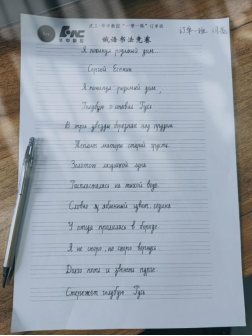 俄语书法竞赛
Я покинул родимый дом...
Сергей Есенин
Я покинул родимый дом,
Голубую оставил Русь.
В три звезды березняк над прудом
Теплит матери старой грусть.
Золотою лягушкой луна
Распласталась на тихой воде.
Словно яблонный цвет, седина
У отца пролилась в бороде.
Я не скоро, не скоро вернусь
Долго петь и звенеть пурге.
Стережет голубую Русь